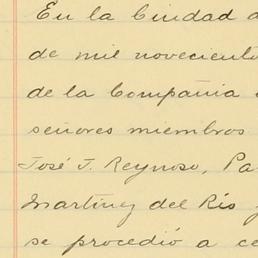 En la Ciudad d
de mil noveciento
de la Compañia
señores miembros
José J. Reynoso, Pa
Martínez del Río y
se procedió a ce